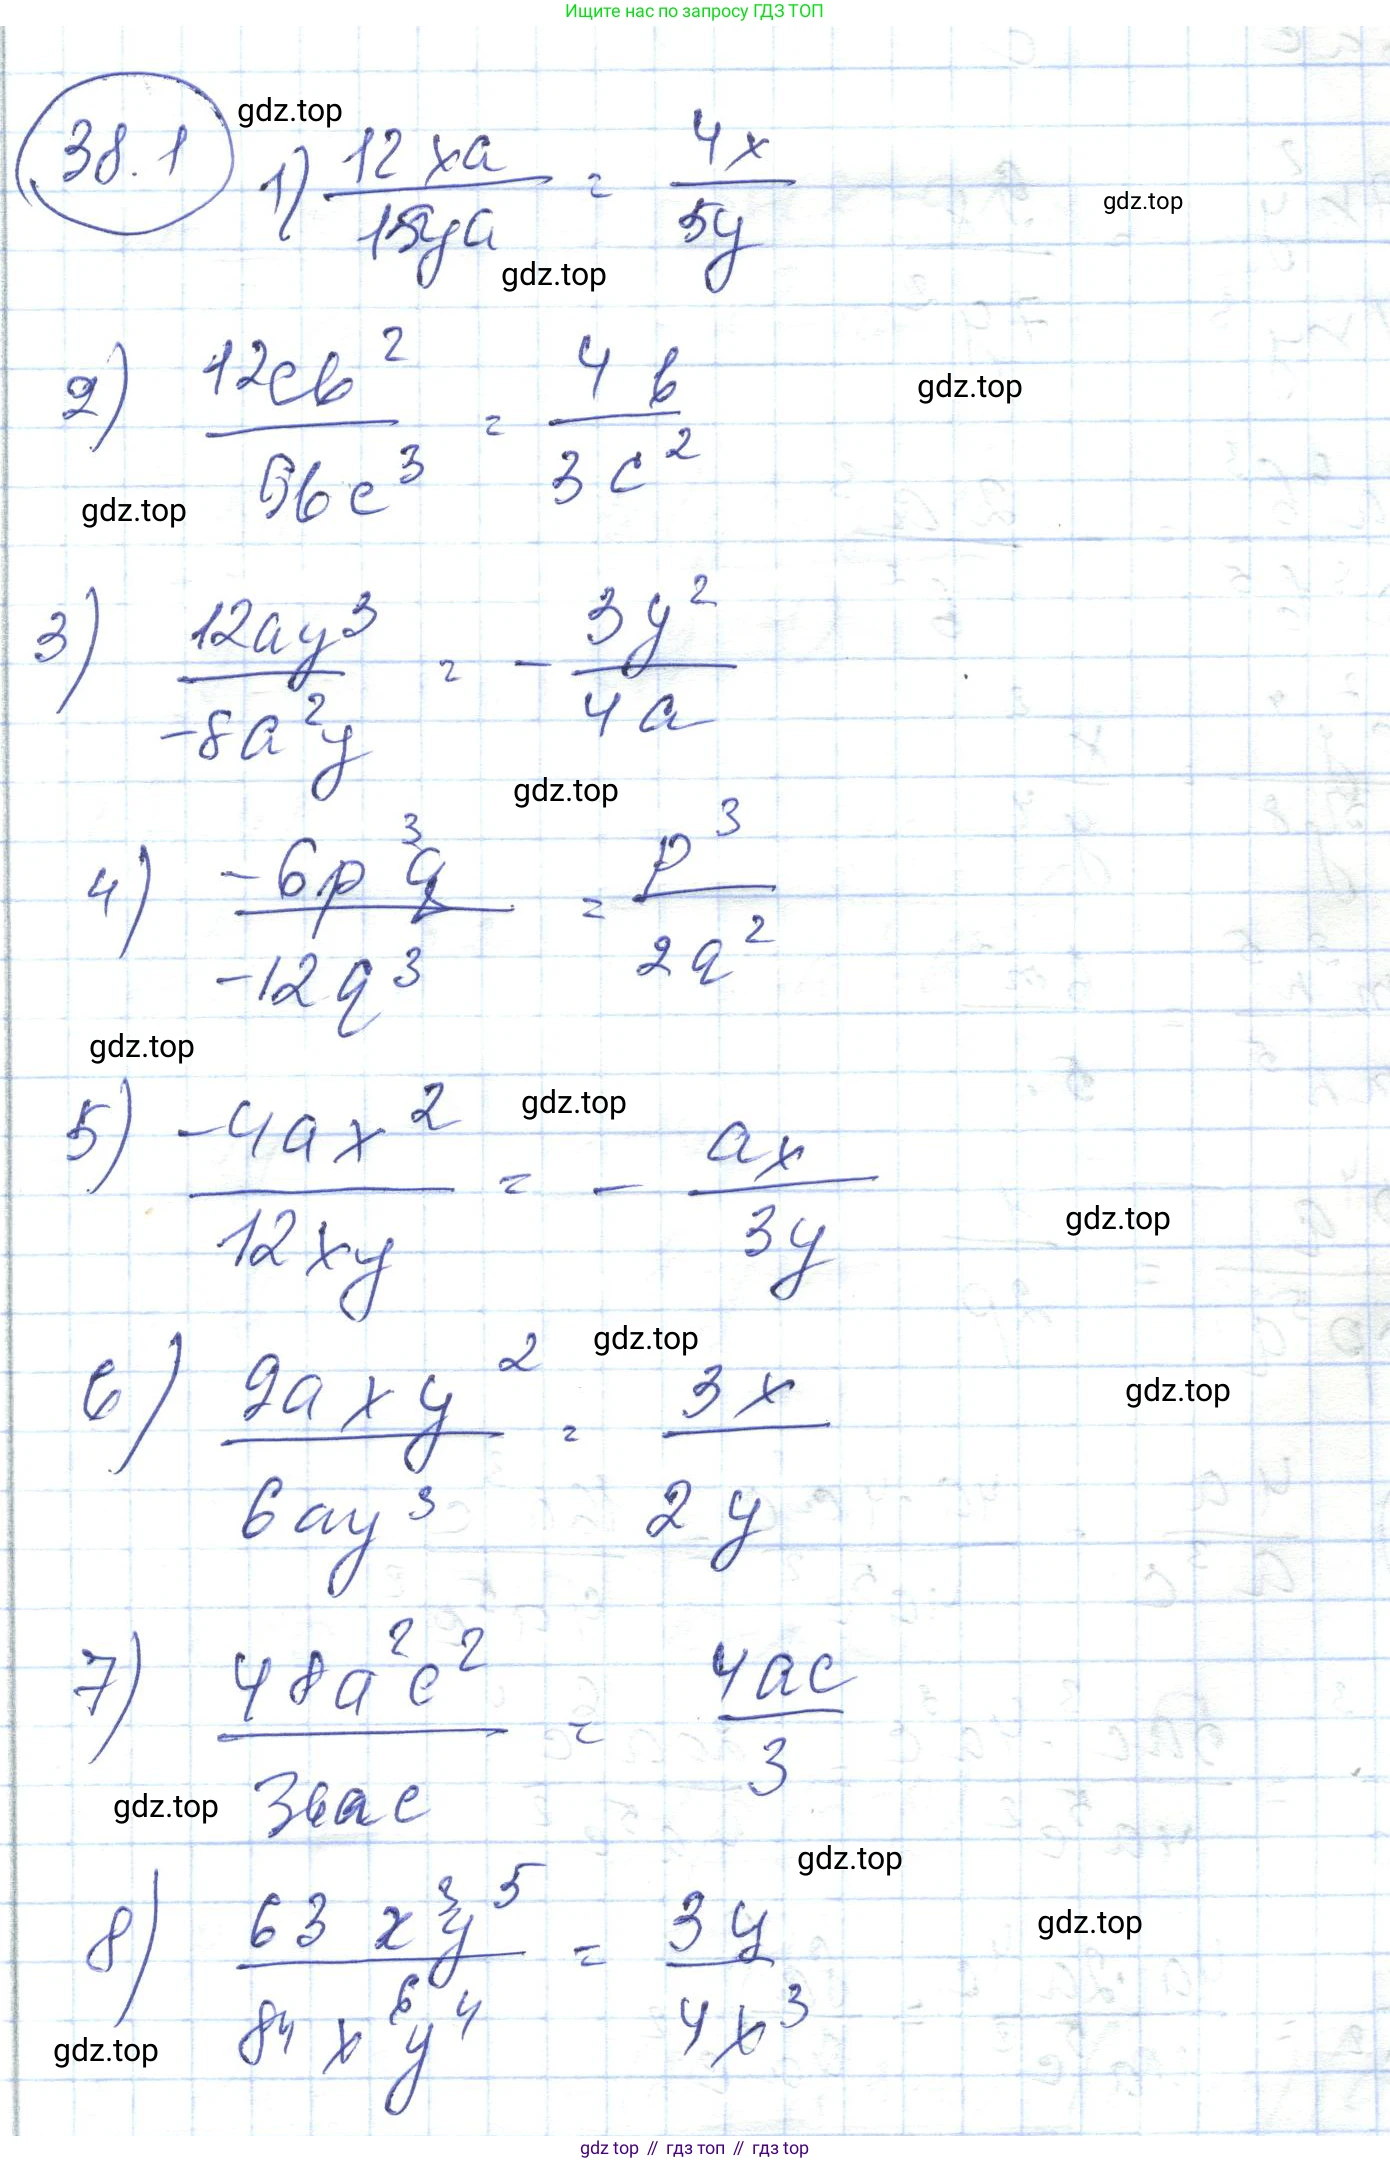 Ищите нас по запросу ГДЗ ТОП
38.1 gdz.top 1) 12xa/15ya = 4x/5y gdz.top
gdz.top
2) 12cb²/9bc³ = 4b/3c² gdz.top
gdz.top
3) 12ay³/-8a²y = - 3y²/4a
gdz.top
4) -6p³q/-12q³ = p³/2q²
gdz.top
gdz.top
5) -4ax²/12xy = - ax/3y gdz.top
gdz.top
6) 9axy²/6ay³ = 3x/2y gdz.top
7) 48a²c²/36ac = 4ac/3
gdz.top
gdz.top
8) 63x³y⁵/84x⁶y⁴ = 3y/4x³ gdz.top
gdz.top
gdz top // гдз топ // гдз top